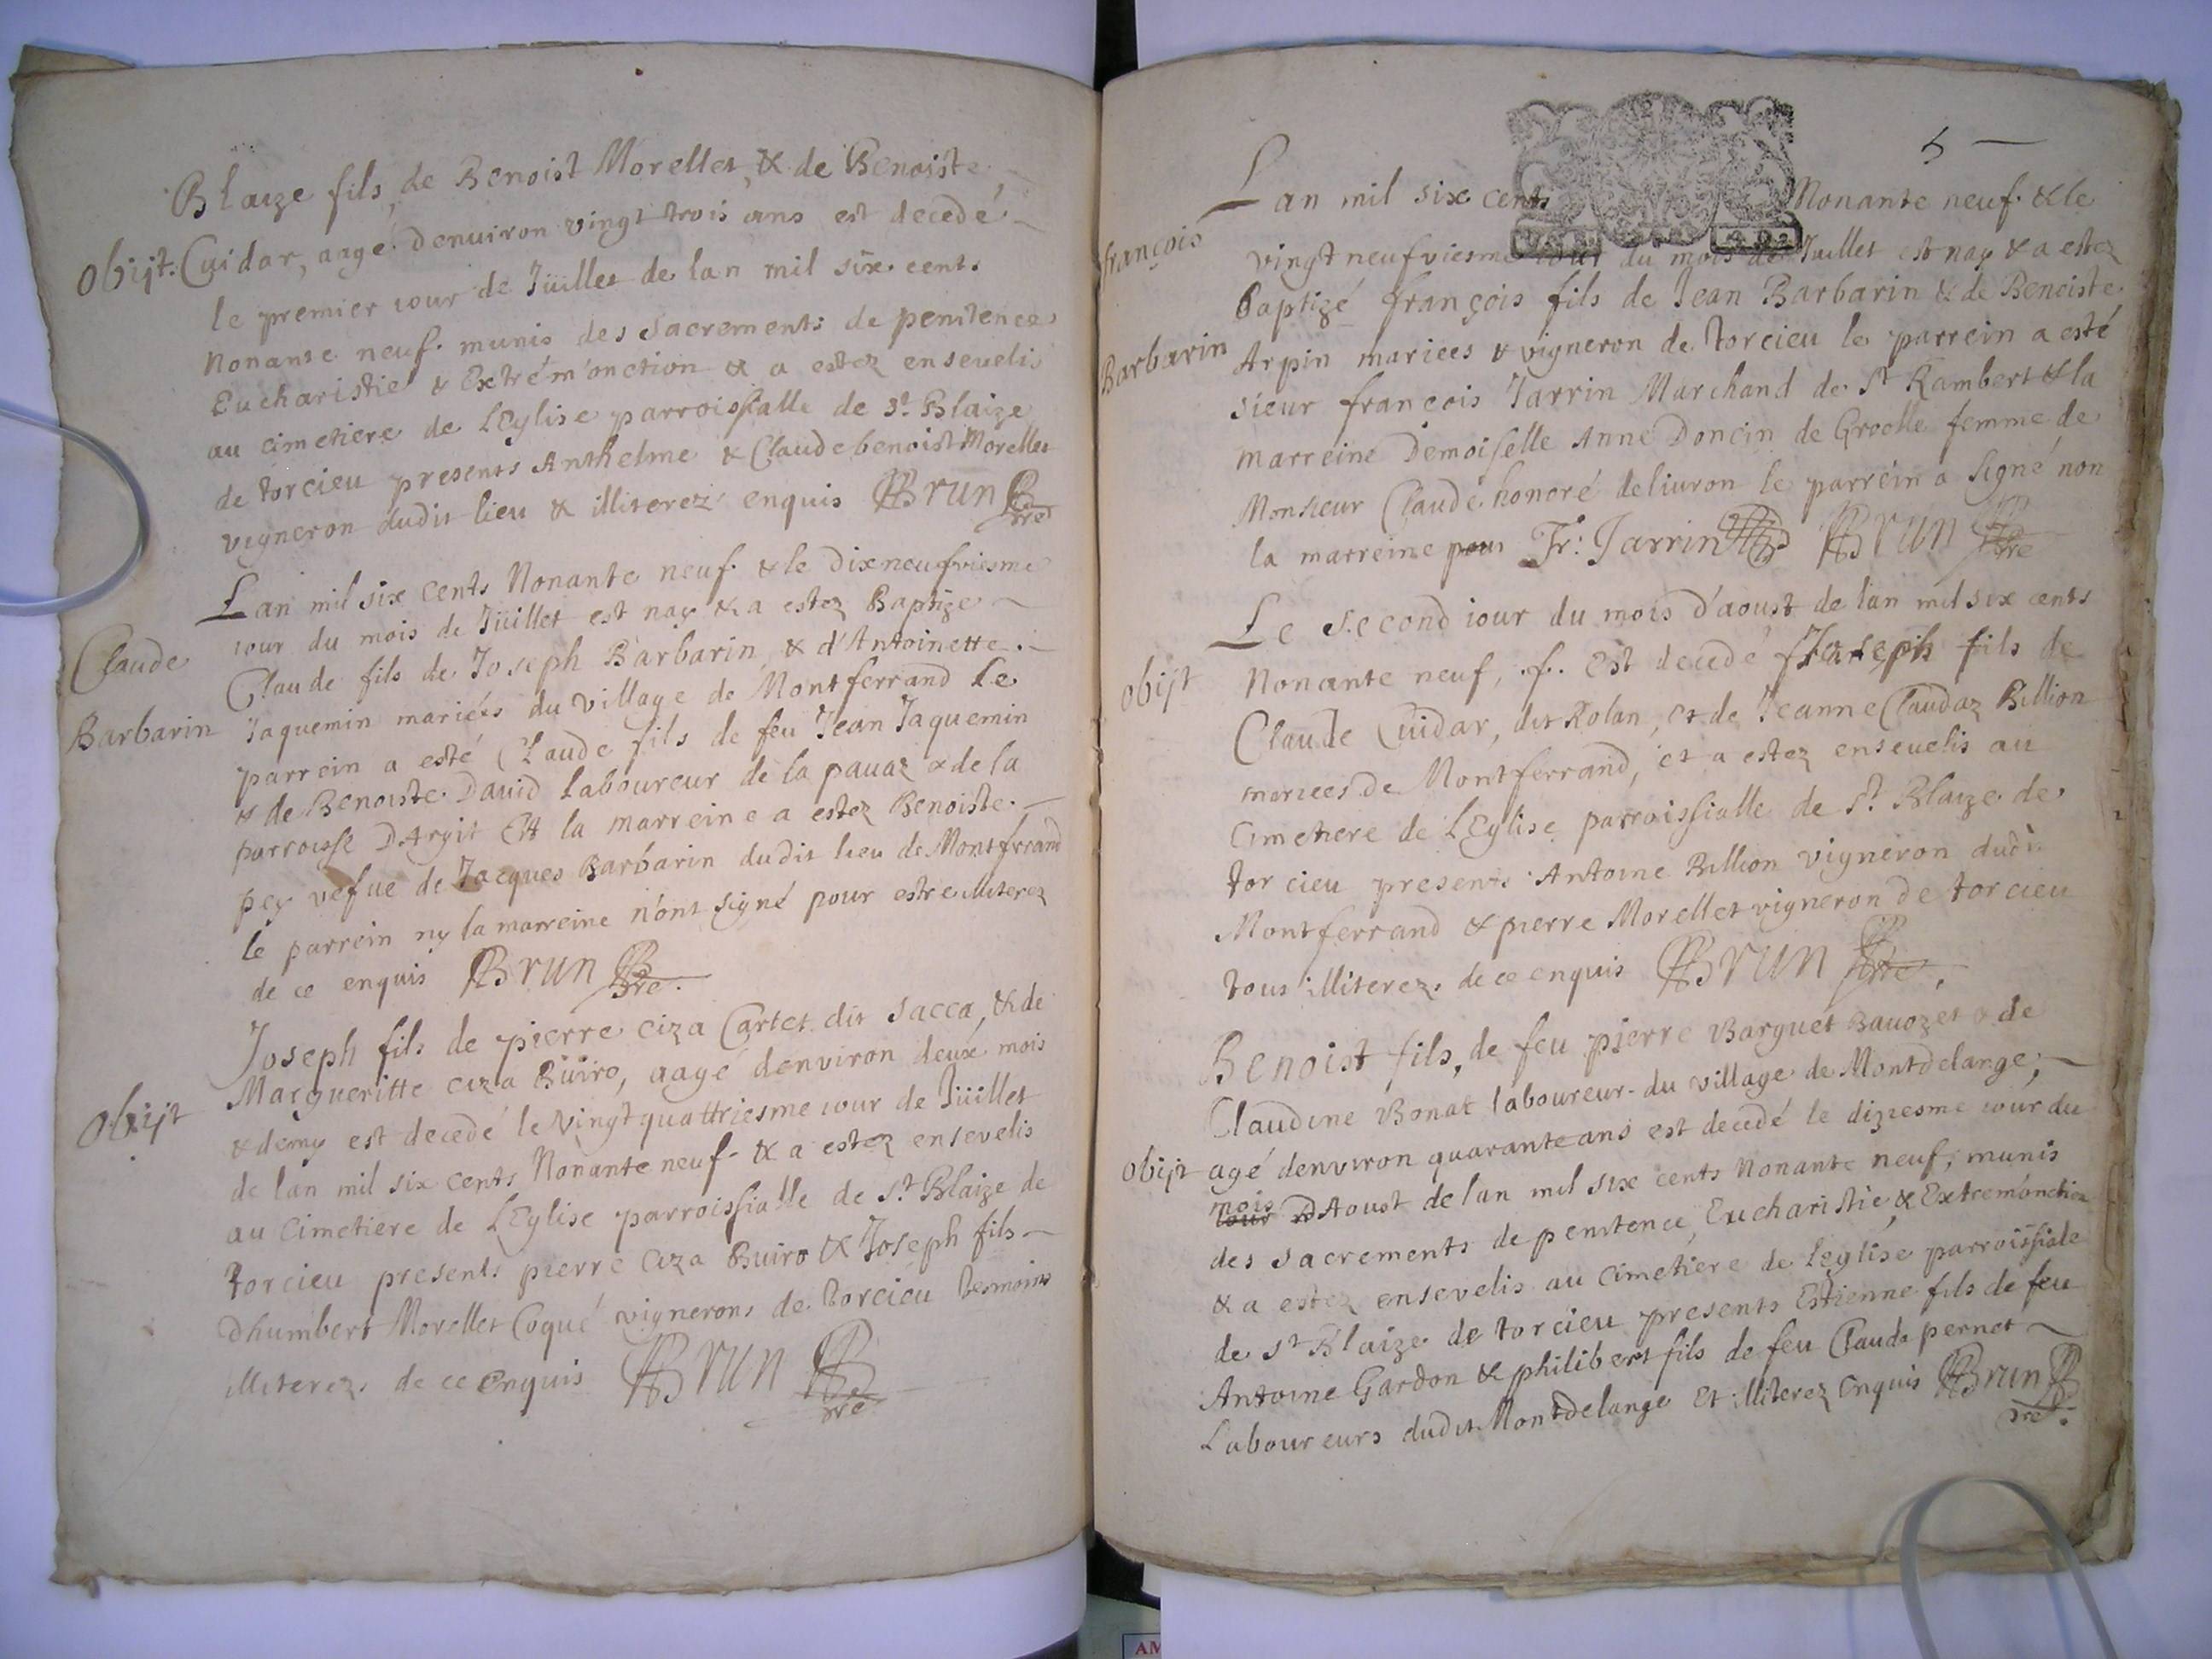 Blaize fils, de Benoist Morellet, & de Benoiste,
Obijt. Cuidar, aagé denuiron vingt trois ans est decedé
le premier iour de Jüillet de lan mil six cents
Nonante neuf munis des sacrements de penitence
Eucharistie & Extrém'onction & a estez enseuelis
au cimetiere de LEglise parroissialle de St Blaize
de torcieu presents Anthelme & Claude benoist Morellet
vigneron dudit lieu & illiterez enquis Brun pre
Lan mil six cents Nonante neuf & le dixneufviesme
iour du mois de Jüillet est nay & a estez Baptize
Claude
Claude fils de Joseph Barbarin & d'Antoinette
Barbarin
Jaquemin mariées du village de Montferrand Le
parrein a esté Claude fils de feu Jean Jaquemin
& de Benoiste David Laboureur de la pauaz & de la
parroisse DArgit Et la marreine a estez Benoiste
pey vefue de Jacques Barbarin dudit lieu de Montferrand
le parrein ny la marreine n'ont signé pour estre illiterez
de ce enquis Brun pre
Joseph fils de pierre ciza Cartet dit Sacca, & de
Margueritte ciza Büiro, aagé denviron deux mois
Obijt
& demy est decedé le Vingt quattriesme iour de Jüillet
de lan mil six cents Nonante neuf & a estez ensevelis
au Cimetiere de LEglise parroissialle de St Blaize de
torcieu presents pierre ciza Buiro & Joseph fils
dhumbert Morellet Coqué vignerons de torcieu tesmoins
illiterez de ce enquis Brun pre
5
Lan mil six cents Nonante neuf & le
françois
vingt neufviesme iour du mois de Juillet est nay & a estez
Baptizé françois fils de Jean Barbarin & de Benoiste
Barbarin
Arpin mariees & vigneron de torcieu le parrein a esté
sieur françois Jarrin Marchand de St Rambert & la
marreine Demoiselle Anne Doncin de Groelle femme de
Monsieur Claude honoré deliuron le parrein a signé non
la marreine Fr: Jarrin Brun pre
Le second iour du mois d'aoust de lan mil six cents
Obijt
Nonante neuf, Est decedé Joseph fils de
Claude Cuidar, dit Rolan, et de Jeanne Claudaz Billion
mariees de Montferrand, et a estez enseuelis au
Cimetiere de LEglise parroissialle de St Blaize de
torcieu presents Antoine Billion vigneron dudit
Montferrand & pierre Morellet vigneron de torcieu
tous illiterez de ce enquis Brun pre
Benoist fils, de feu pierre Barguet Bauozet & de
Claudine Bonat laboureur du village de Montdelange,
Obijt agé denviron quarante ans est decedé le dizieme iour du
mois
iour DAoust de lan mil six cents Nonante neuf, munis
des sacrements de penitence, Eucharistie, & Extrem'onction
& a estez ensevelis au cimetiere de Leglise parroissiale
de St Blaize de torcieu presents Estienne fils de feu
Antoine Gardon & philibert fils de feu Claude pernet
Laboureurs dudit Montdelange Et illiterez Enquis Brun
pre
AM